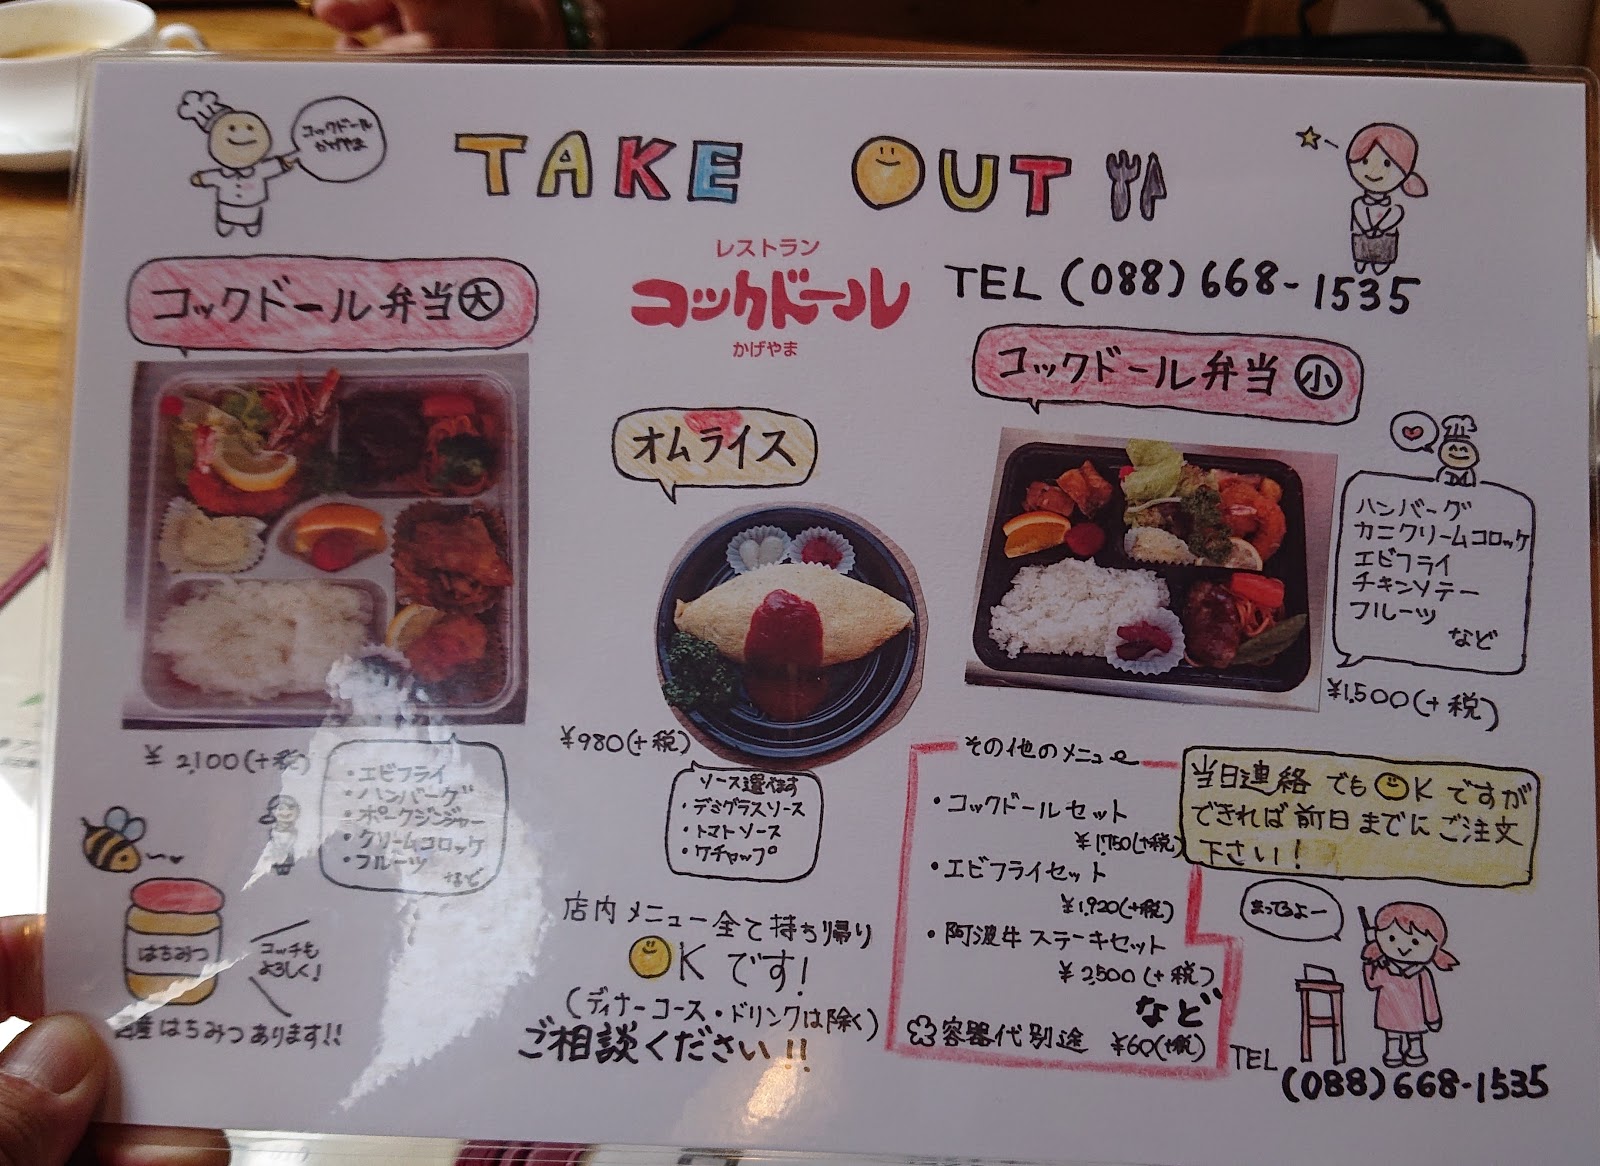 コックドール
かげやま
TAKE OUT
レストラン
コックドール
かげやま
TEL (088) 668-1535
コックドール弁当 大
¥2,100(+税)
・エビフライ
・ハンバーグ
・ポークジンジャー
・クリームコロッケ
・フルーツ
など
オムライス
¥980(+税)
ソース選べます
・デミグラスソース
・トマトソース
・ケチャップ
コックドール弁当 小
ハンバーグ
カニクリームコロッケ
エビフライ
チキンソテー
フルーツ
など
¥1,500(+税)
その他のメニュー
・コックドールセット
¥1,750(+税)
・エビフライセット
¥1,920(+税)
・阿波牛ステーキセット
¥2,500(+税)
など
容器代別途 ¥60(+税)
当日連絡でもOKですが
できれば前日までにご注文
下さい!
まってるよー
TEL
(088)668-1535
はちみつ
コッチも
よろしく!
産はちみつあります!!
店内メニュー全て持ち帰り
OKです!
(ディナーコース・ドリンクは除く)
ご相談ください!!